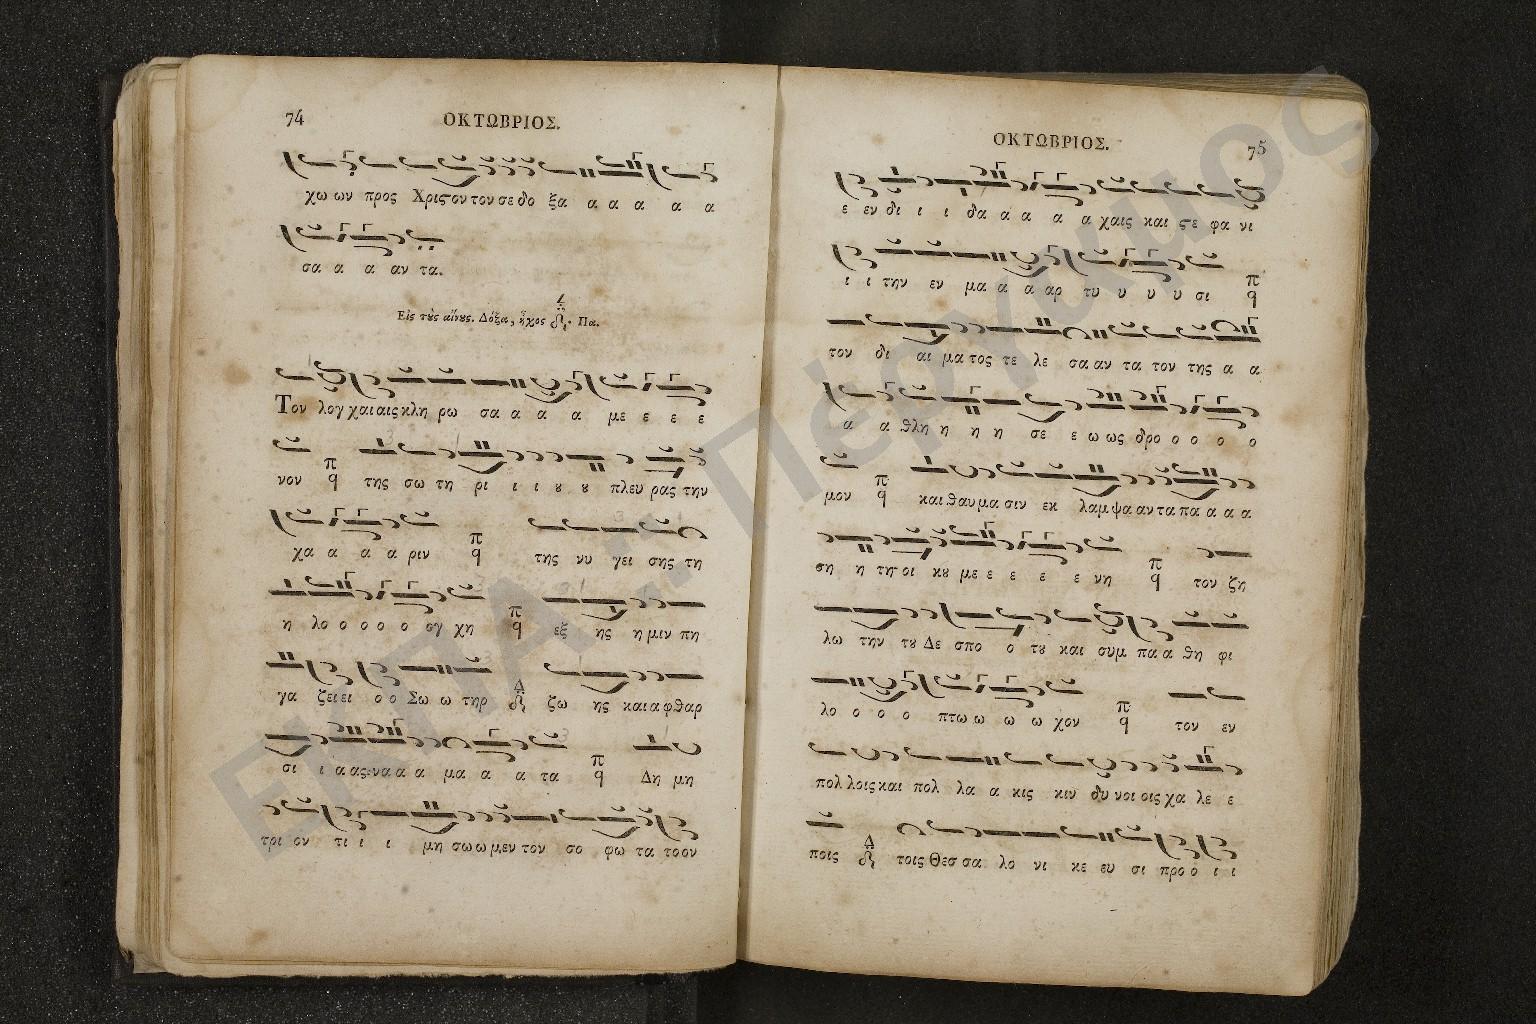 74
ΟΚΤΩΒΡΙΟΣ.
χω ων προς Χριστον τον σε δο ξα α α α α α
σα α α αν τα.
Εἰς τȣ̀ς αἴνȣς. Δόξα, ἦχος Πα.
Τον λογ χαι αις κλη ρω σα α α α με ε ε ε
νον π q της σω τη ρι ι ι ȣ ȣ πλευ ρας την
χα α α α ριν π q της νυ γει σης τη
η λο ο ο ο ο ογ χη π q εξ ης η μιν πη
γα ζει ει ο ο Σω ω τηρ Δ ζω ης και α φθαρ
σι ι α ας να α α μα α α τα π q Δη μη
τρι ον τι ι ι μη σω ω μεν τον σο φω τα το ον
ΟΚΤΩΒΡΙΟΣ.
75
ε εν δι ι ι δα α α α α χαις και στε φα νι
ι ι την εν μα α α αρ τυ υ υ υ σι π q
τον δι αι μα τος τε λε σα αν τα τον της α α
α α θλη η η η σε ε ω ως δρο ο ο ο ο
μον π q και θαυ μα σιν εκ λαμ ψα αν τα πα α α α
ση η τη οι κȣ με ε ε ε ε νη π q τον ζη
λω την τȣ Δε σπο ο τȣ και συμ πα α θη φι
λο ο ο ο πτω ω ω ω χον π q τον εν
πολ λοις και πολ λα α κις κιν δυ νοι οις χα λε ε
ποις Δ τοις Θεσ σα λο νι κε ευ σι προ ο ι ι
ΕΠΑ.Σ Πέργαμος